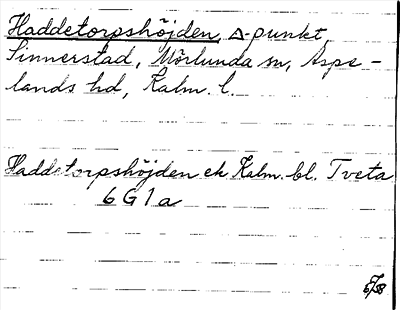 Haddetorpshöjden, △-punkt,
Sinnerstad, Mörlunda sn, Aspe-
lands hd, Kalm. l.
Haddetorpshöjden ek Kalm. bl. Tveta
6 G 1 a